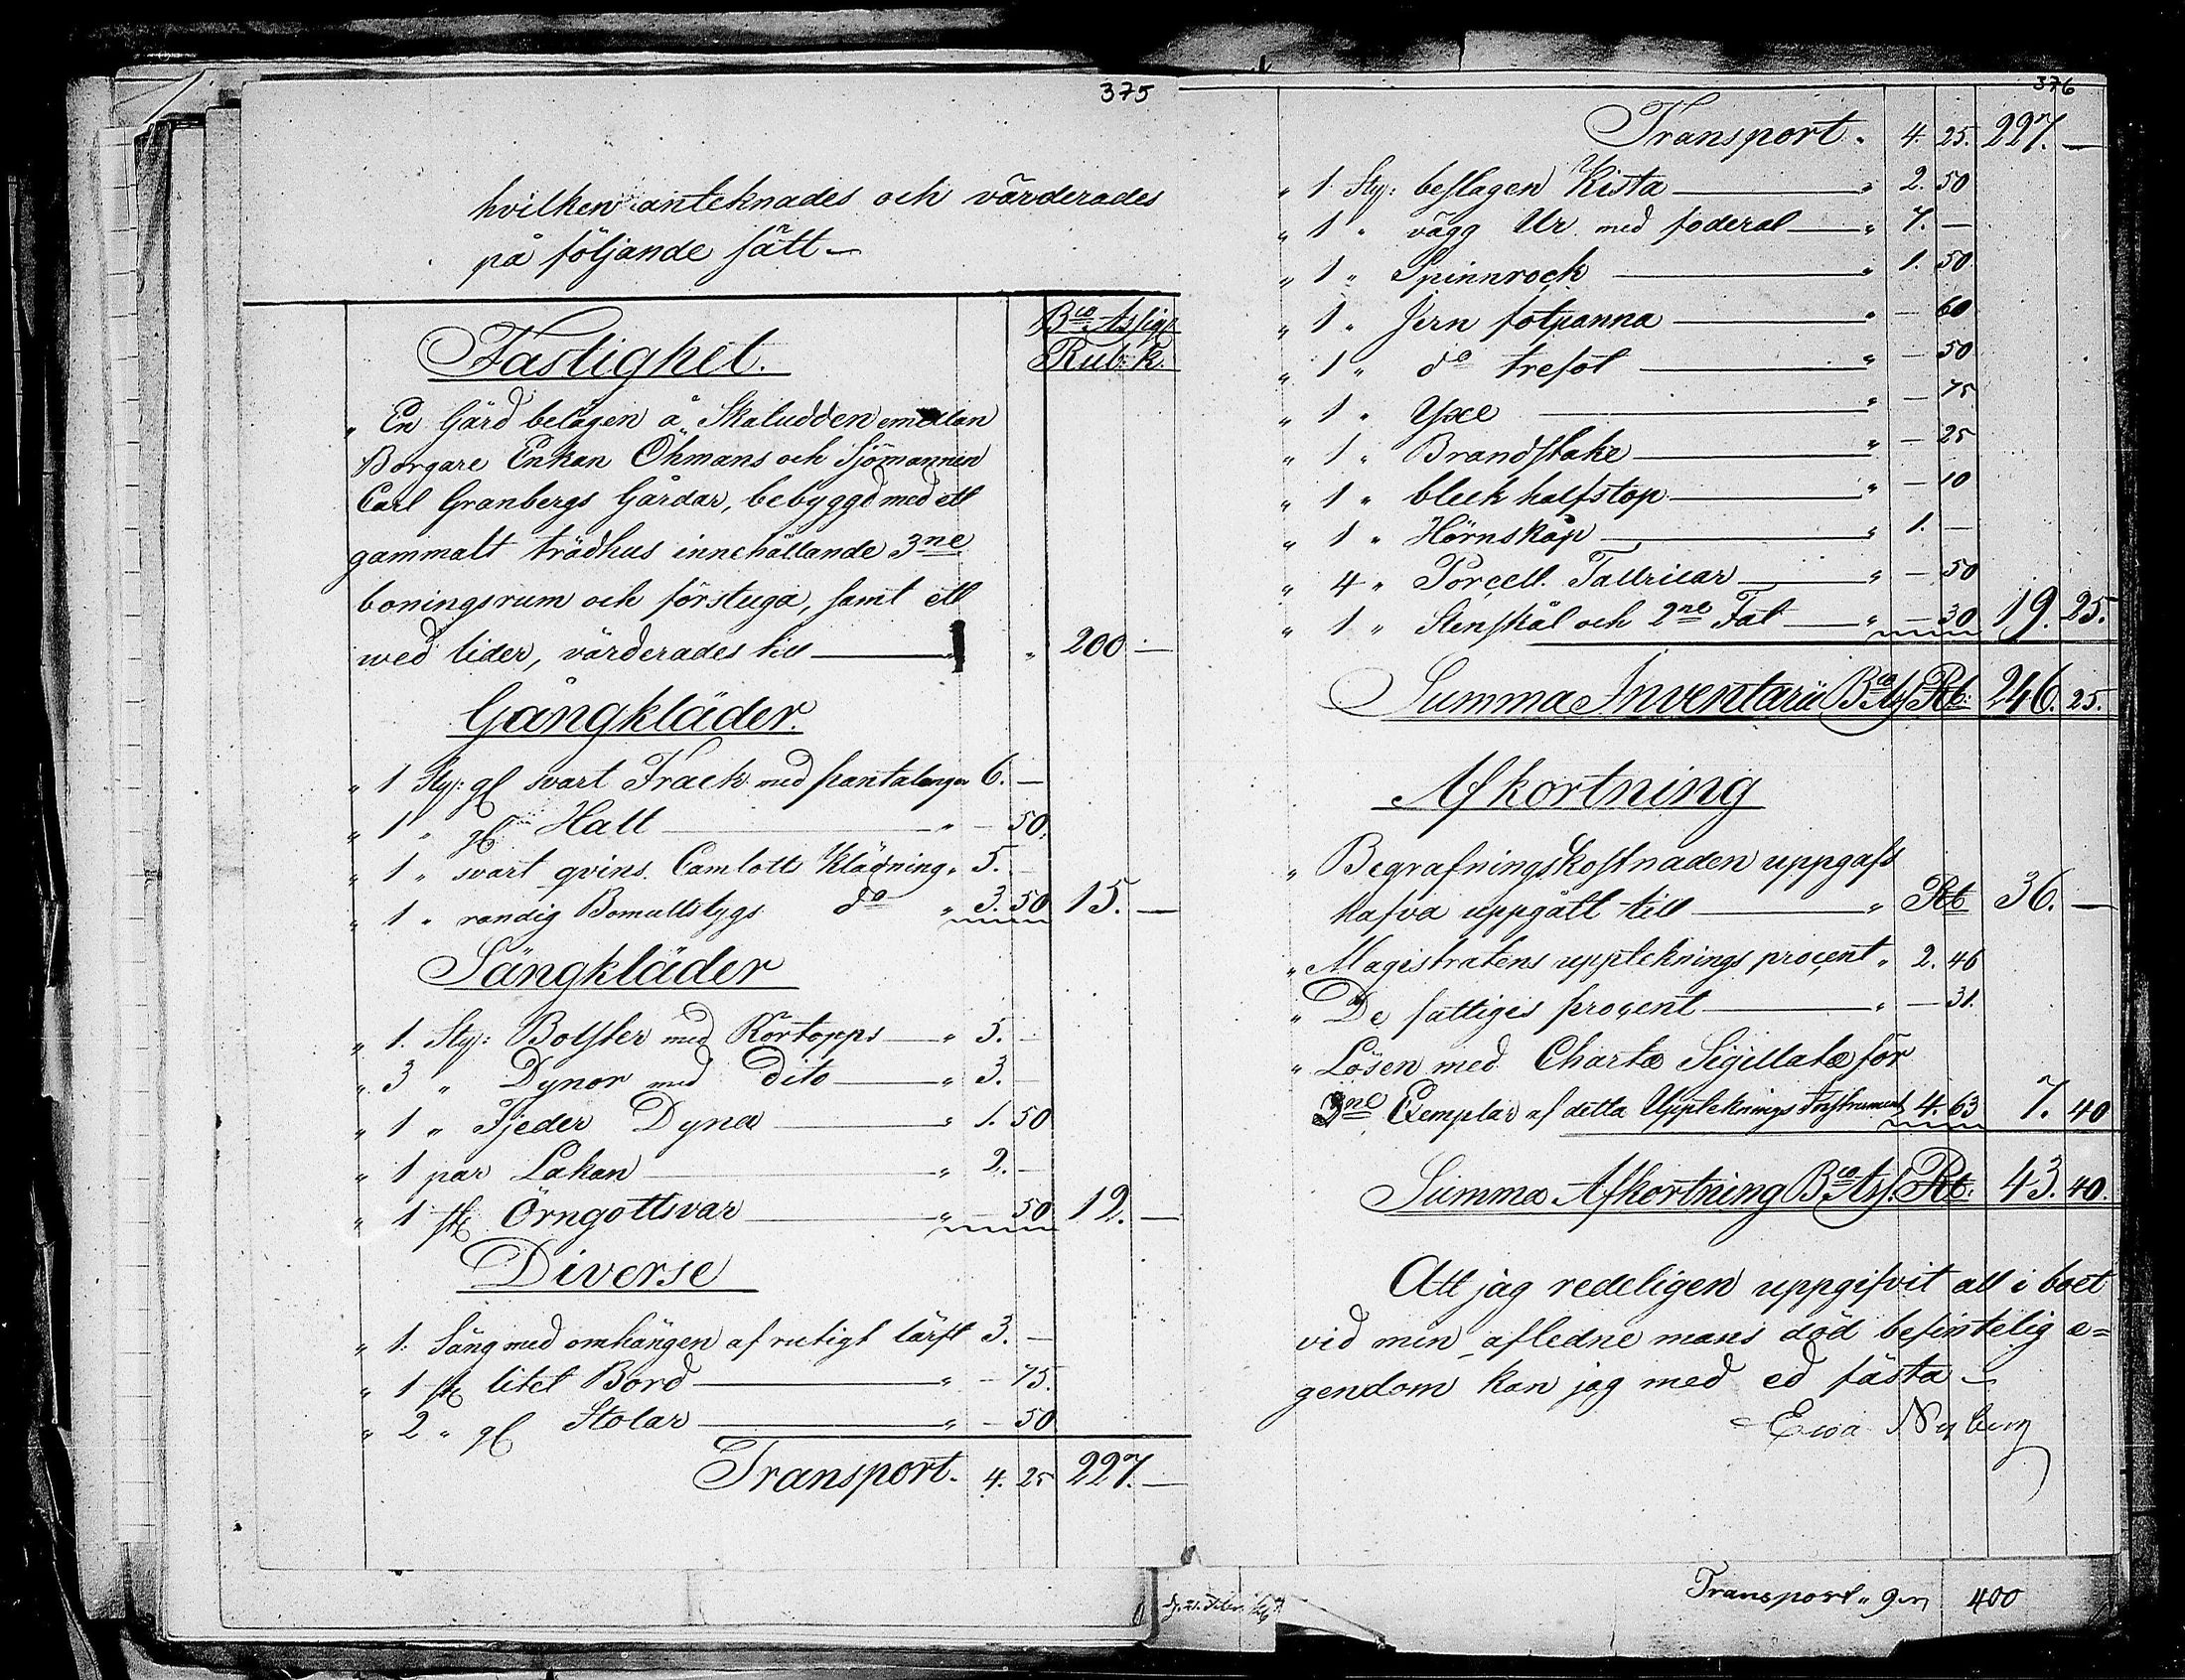 375
hvilken anteknades och värderades
på följande sätt —
Bco Assig:
Rub: k.
Fastighet.
" En Gård belägen å Skatudden emellan
Borgare Enkan Öhmans och Sjömannen
Carl Granbergs Gårdar, bebyggd med ett
gammalt trädhus innehållande 3ne
boningsrum och förstuga, samt ett
wed lider, värderades till — " 200. —
Gångkläder.
" 1 Sty: gl svart Frack med pantalonger 6. —
" 1 " gl Hatt — " — 50.
" 1 " svart qvins. Camlotts Klädning " 5. —
" 1 " randig Bomullstygs do " 3. 50 15. —
Sängkläder
" 1. Sty: Bolster med Körtopps — " 5. —
" 3 " Dynor med Dito — " 3. —
" 1 " Fjeder Dyna — " 1. 50
" 1 par Lakan — " 2. —
" 1 st Örngottsvar — " — 50 12. —
Diverse
" 1. Säng med omhängen af rutigt lärft 3. —
" 1 st litet Bord — " — 75.
" 2 " gl Stolar — " — 50
Transport. 4. 25 227. —
376
Transport. 4. 25. 227. —
" 1. Sty: beslagen Kista — " 2. 50
" 1 " vägg Ur med foderal — " 7. —
" 1 " Spinnrock — " 1. 50
" 1 " Jern fotpanna — " — 60
" 1 " do trefot — " — 50
" 1 " Yxe — " — 75
" 1 " Brandstake — " — 25
" 1 " bleck halfstop — " — 10
" 1 " Hörnskåp — " 1. —
" 4 " Porcell. Tallrickar — " — 50
" 1 " Stenskål och 2ne Fat — " — 30 19. 25.
Summa Inventarii Bco Ass Rb: 246. 25.
Afkortning
" Begrafningskostnaden uppgafs
hafva uppgått till — " Rb 36. —
" Magistratens upptecknings procent " 2. 46
" De fattiges procent — " — 31.
" Lösen med Charta Sigillata för
3ne Exemplar af detta Upptecknings Instrument 4. 63 7. 40
Summa Afkortning Bco Ass. Rb: 43. 40.
Att jag redeligen uppgifvit all i boet
vid min afledne mans död befintelig e=
gendom kan jag med ed fästa —
Ewa Nyberg
Transport " 400